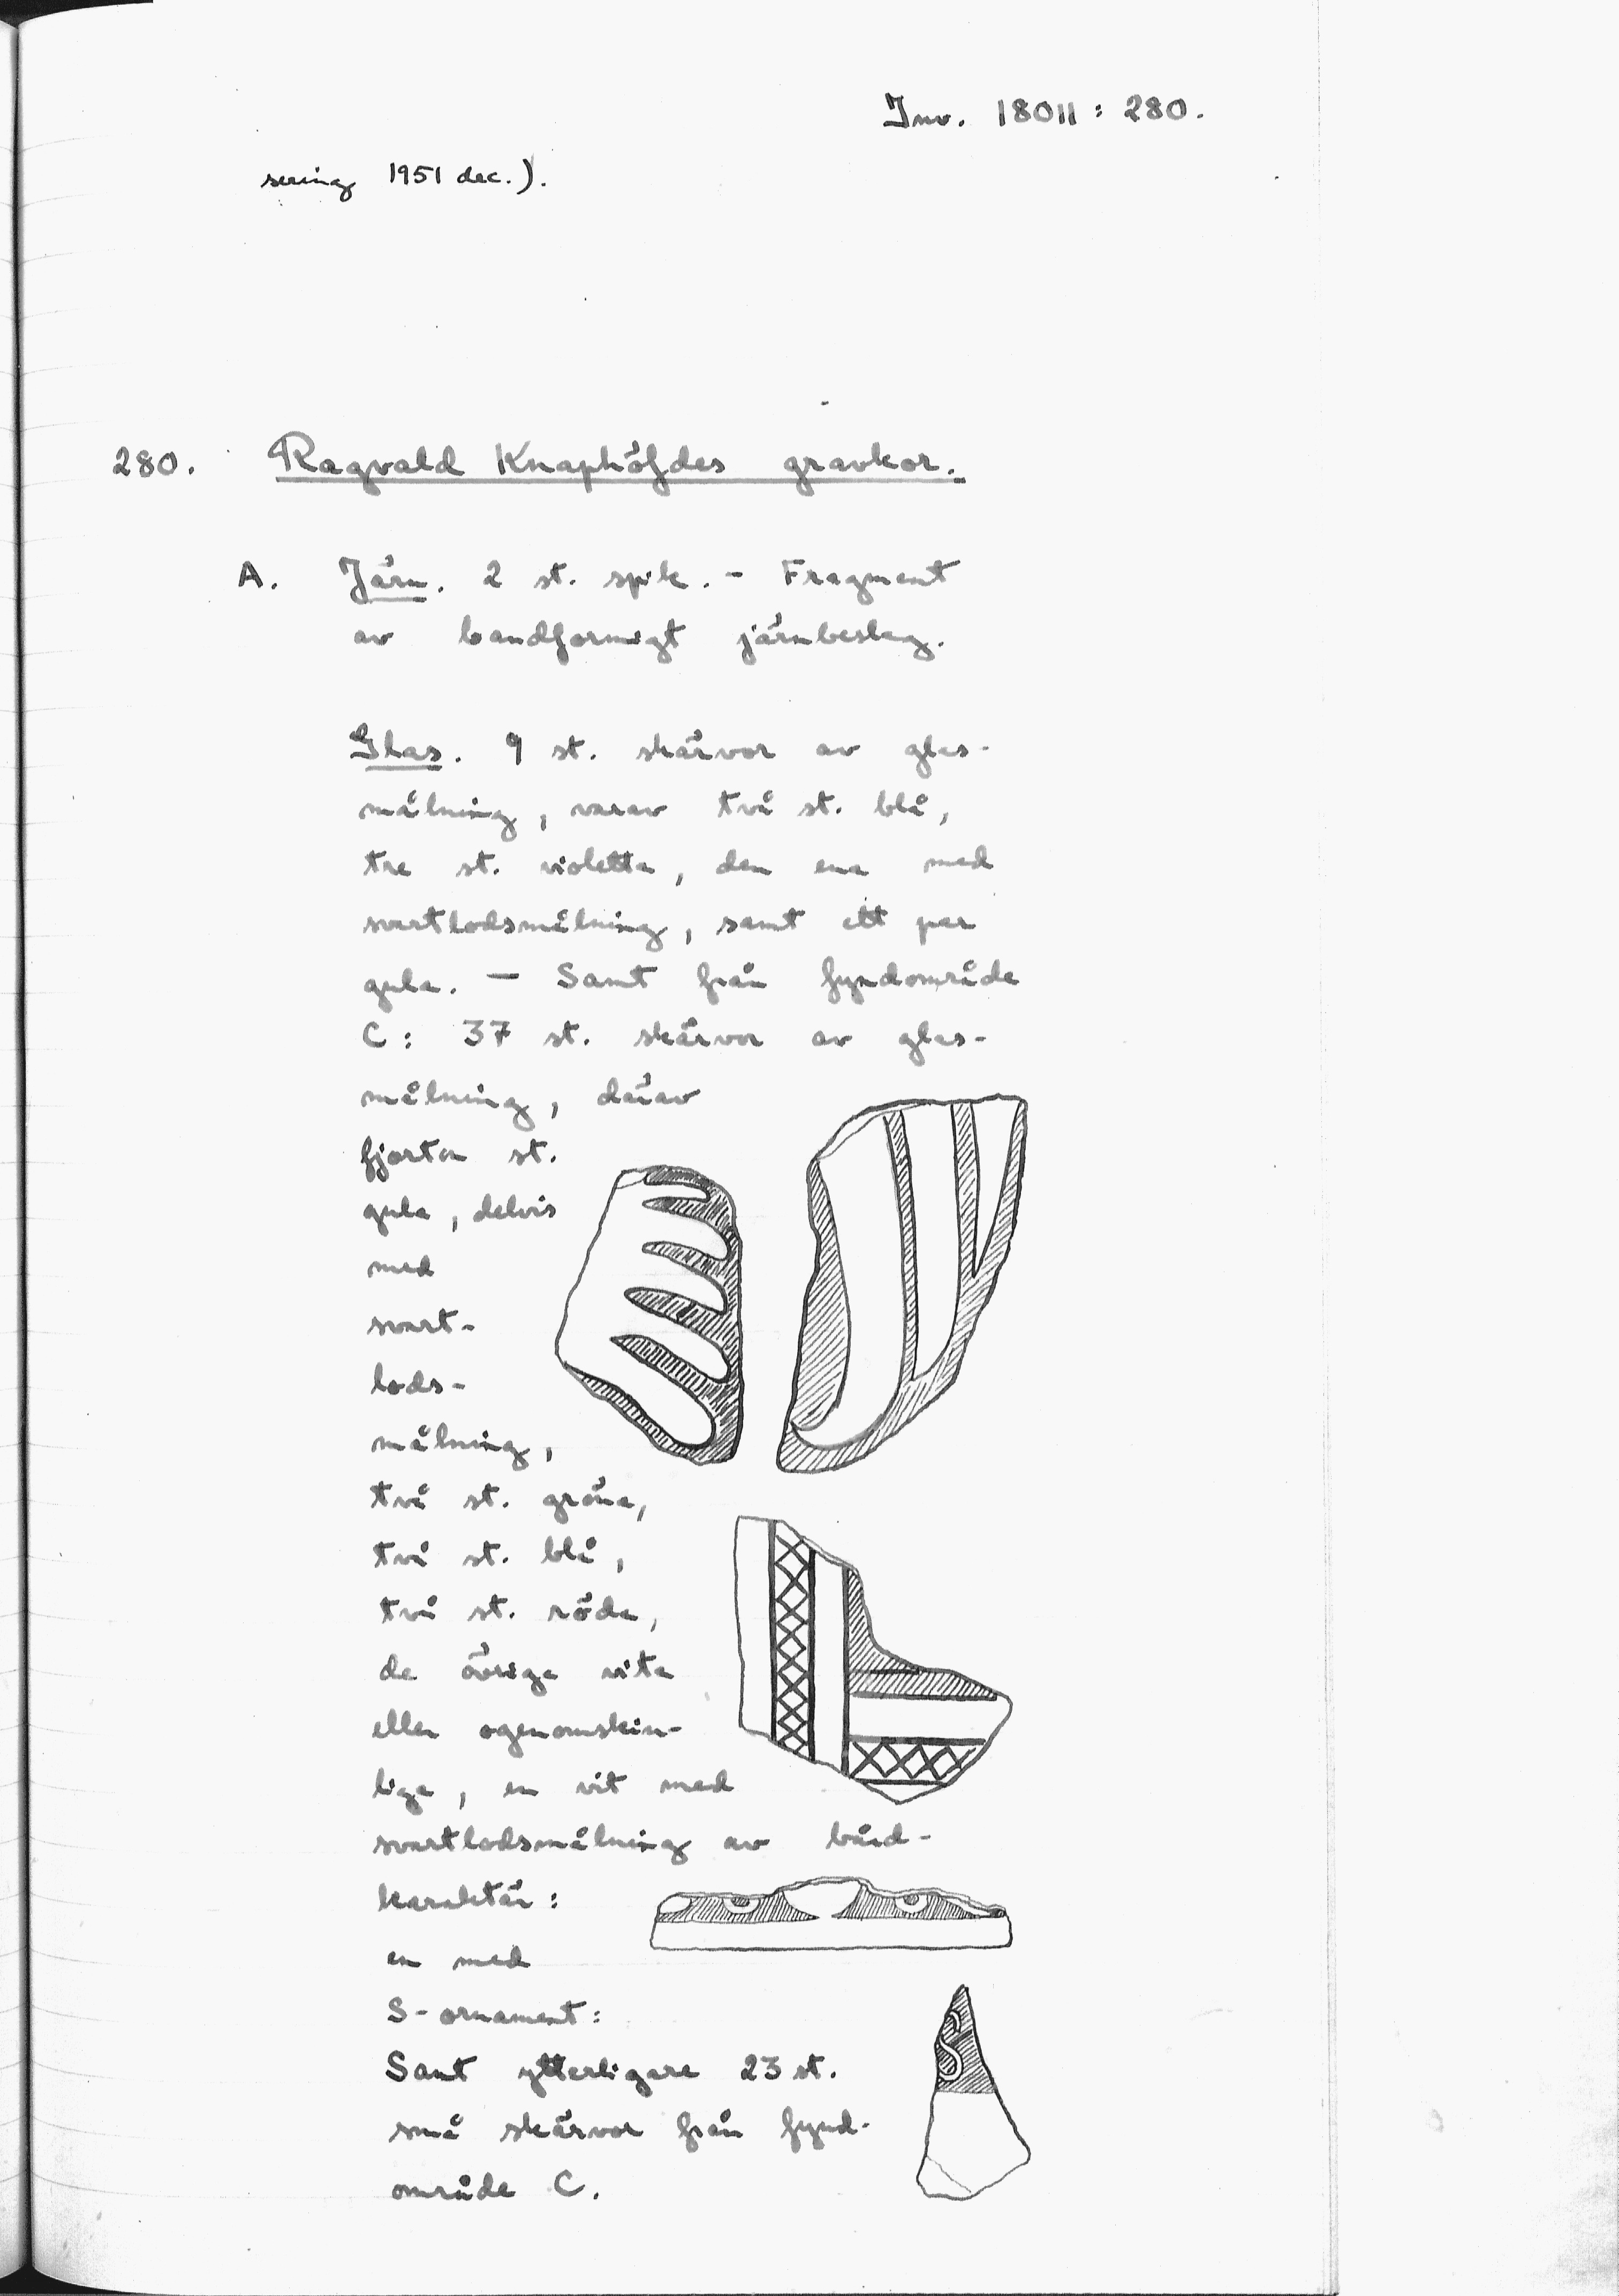 Inv. 18011 : 280.
sering 1951 dec.).
280. Ragvald Knaphöfdes gravkor.
A. Järn. 2 st. spik. - Fragment
av bandformigt järnbeslag.
Glas. 9 st. skärvor av glas-
målning, varav två st. blå,
tre st. violetta, den ena med
svartlodsmålning, samt ett par
gula. — Samt från fyndområde
C : 37 st. skärvor av glas-
målning, därav
fjorton st.
gula, delvis
med
svart-
lods-
målning,
två st. gröna,
två st. blå,
två st. röda,
de övriga vita
eller ogenomskin-
liga, en vit med
svartlodsmålning av bård-
karaktär :
en med
S-ornament :
Samt ytterligare 23 st.
små skärvor från fynd-
område C.